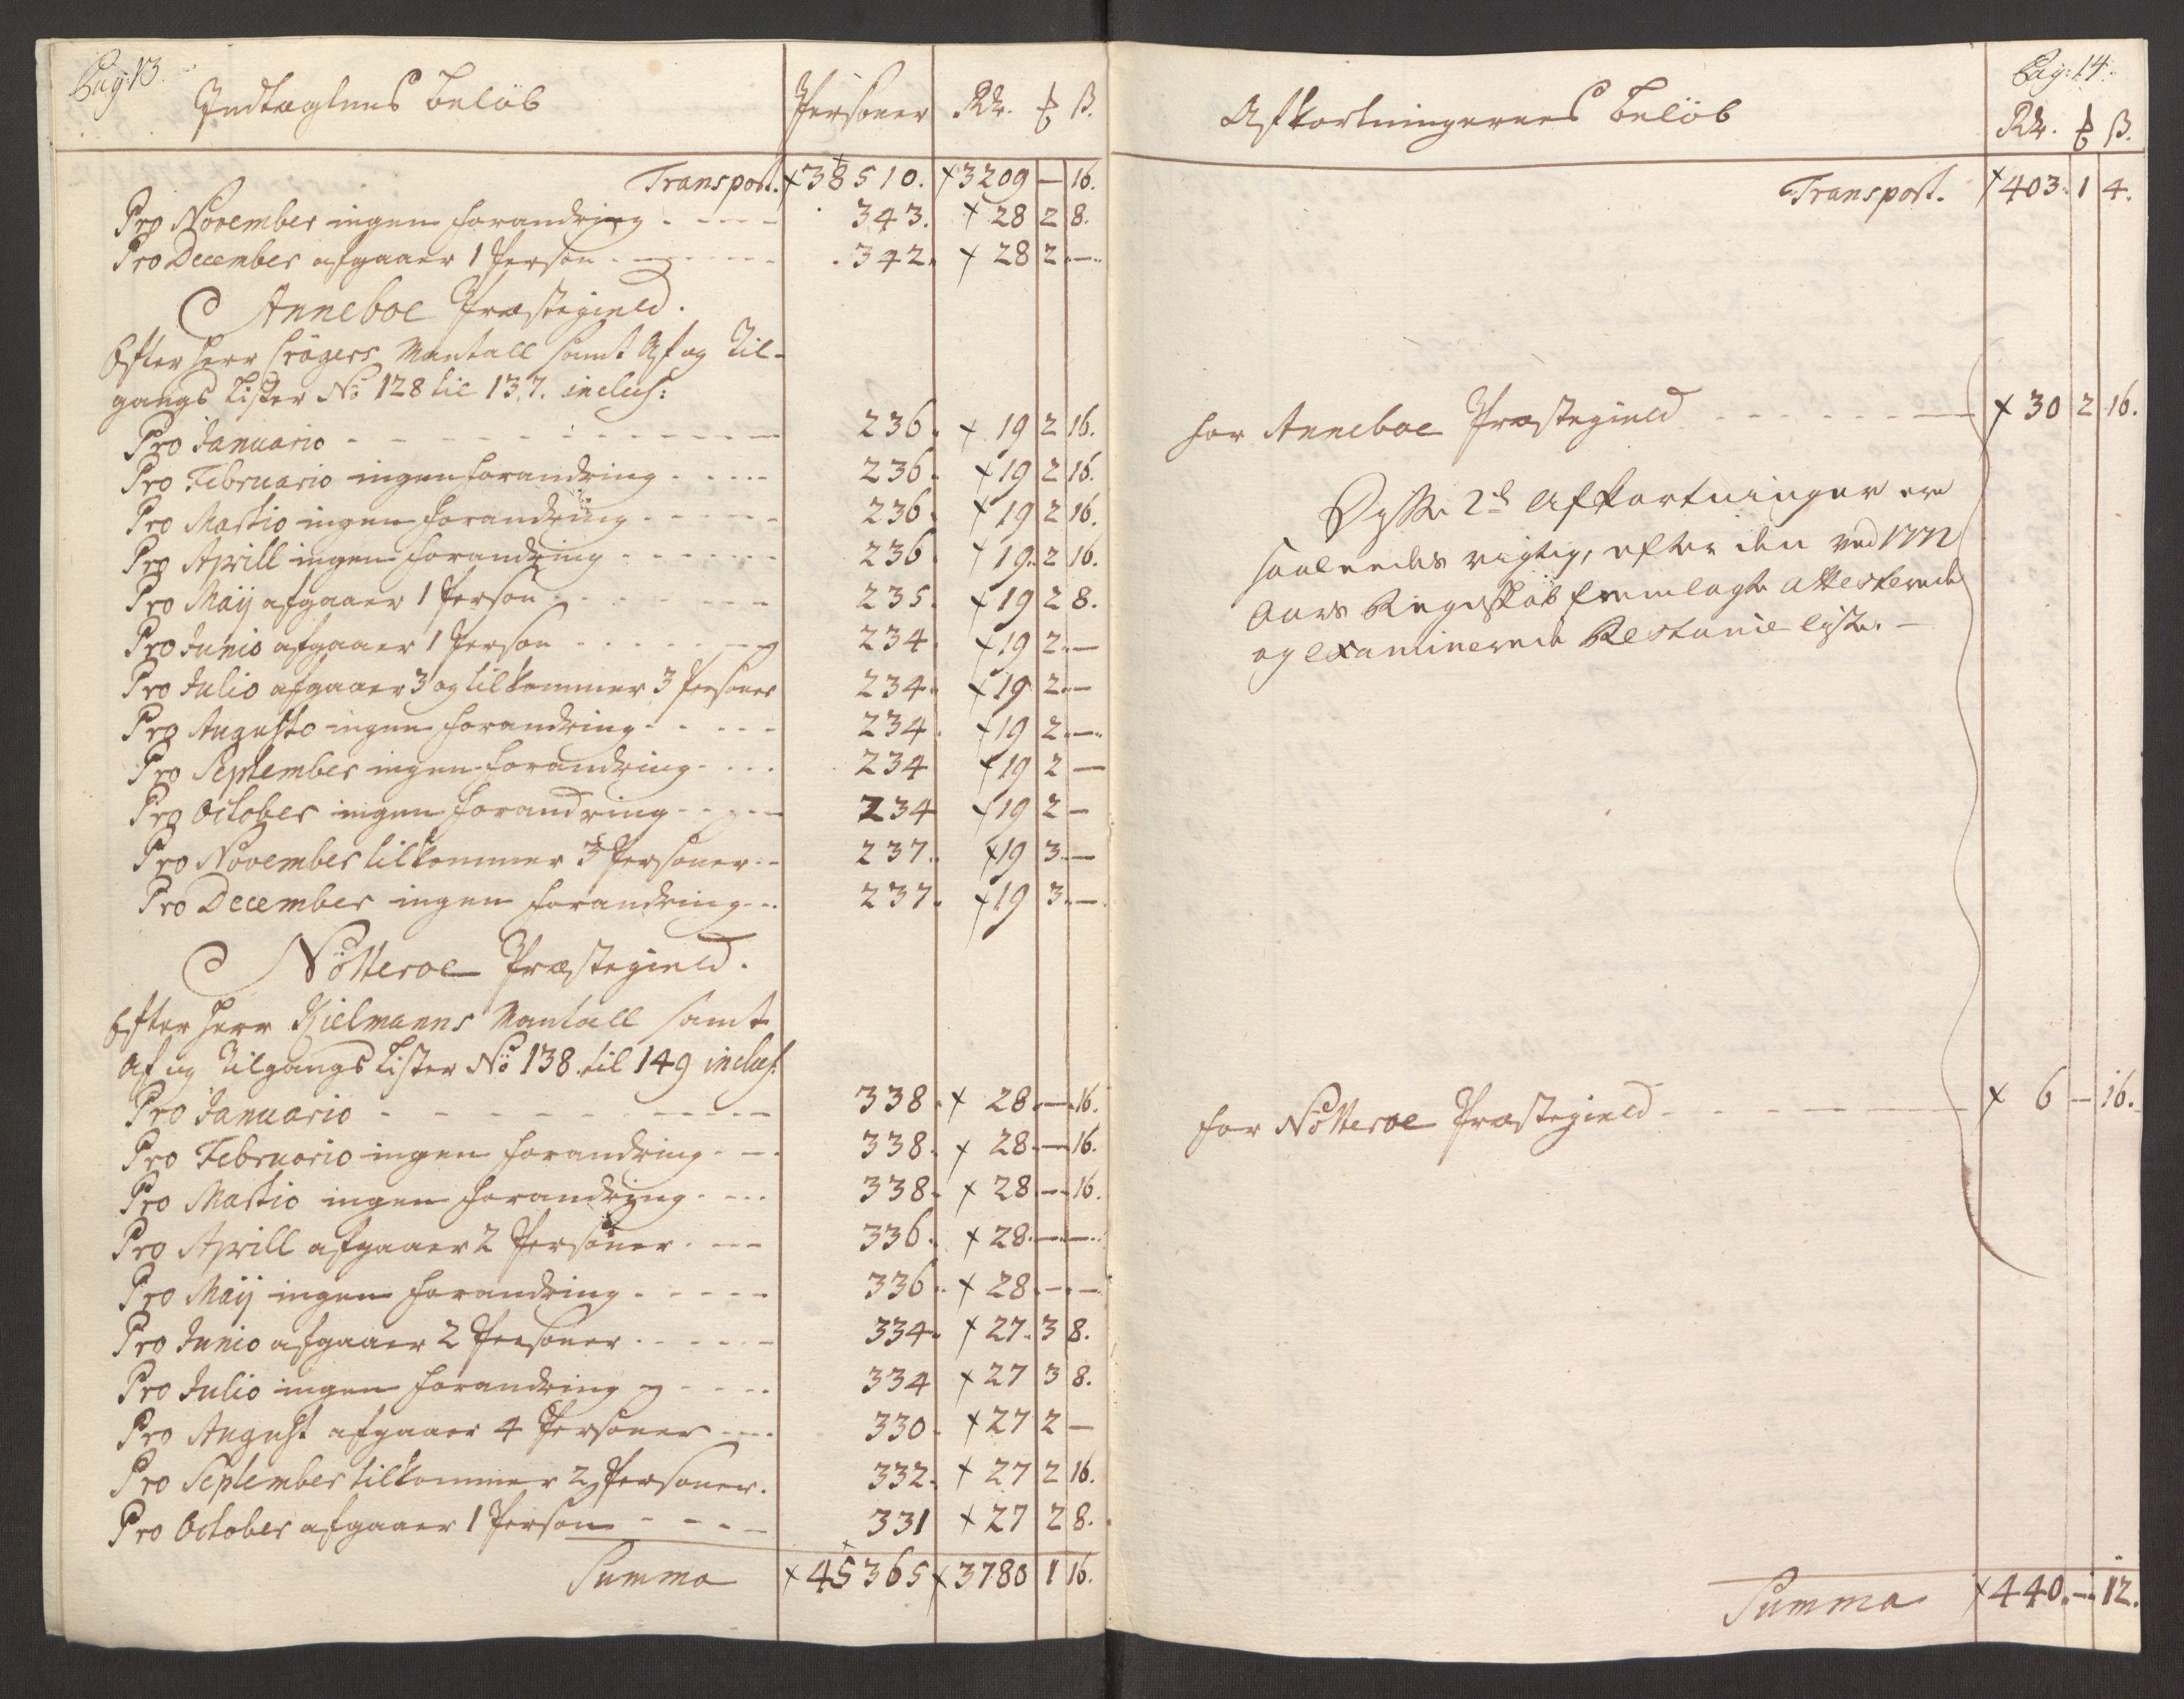 Pag: 13.
Indtægtens Beløb Personer Rdr. ß.
Transport. 38510. 3209 — 16.
Pro November ingen forandring 343. 28 2 8.
Pro December afgaaer 1 Person 342. 28 2 —
Anneboe Præstegield.
Efter Herr Crøgers Mantall samt Af og Til-
gangs Lister No 128 til 137. inclus:
Pro Januario 236. 19 2 16.
Pro Februario ingen forandring 236. 19 2 16.
Pro Martio ingen forandring 236. 19 2 16.
Pro Aprill ingen forandring 236. 19. 2 16.
Pro Maij afgaaer 1 Person 235. 19 2 8.
Pro Junio afgaaer 1 Person 234. 19 2. —
Pro Julio afgaaer 3 og tilkommer 3 Personer 234. 19 2. —
Pro Augusto ingen forandring 234. 19 2. —
Pro September ingen forandring 234 19 2 —
Pro October ingen forandring 234 19 2 —
Pro November tilkommer 3 Personer 237. 19 3. —
Pro December ingen forandring 237. 19 3. —
Nötteroe Præstegield.
Efter Herr Kielmanns Mantall samt
Af og Tilgangs Lister No 138. til 149 inclus:
Pro Januario 338. 28. — 16.
Pro Februario ingen forandring 338. 28. — 16.
Pro Martio ingen forandring 338. 28. — 16.
Pro Aprill afgaaer 2 Personer 336. 28. — —
Pro Maij ingen forandring 336. 28. — —
Pro Junio afgaaer 2 Personer 334. 27. 3 8.
Pro Julio ingen forandring 334 27 3 8.
Pro August afgaaer 4 Personer 330. 27 2 —
Pro September tilkommer 2 Personer. 332. 27 2 16.
Pro October afgaaer 1 Person 331 27 2 8.
Summa 45365 3780 1 16.
Pag: 14.
Afkortningernes Beløb Rdr. ß.
Transport. 403. 1 4.
for Anneboe Præstegield 30 2 16.
Disse 2de Afkortninger ere
saaledes rigtig, efter den ved 1772
Aars Regnskab fremlagte attesterede
og examinerede Restance liste. —
for Nötteroe Præstegield 6 — 16.
Summa 440. — 12.